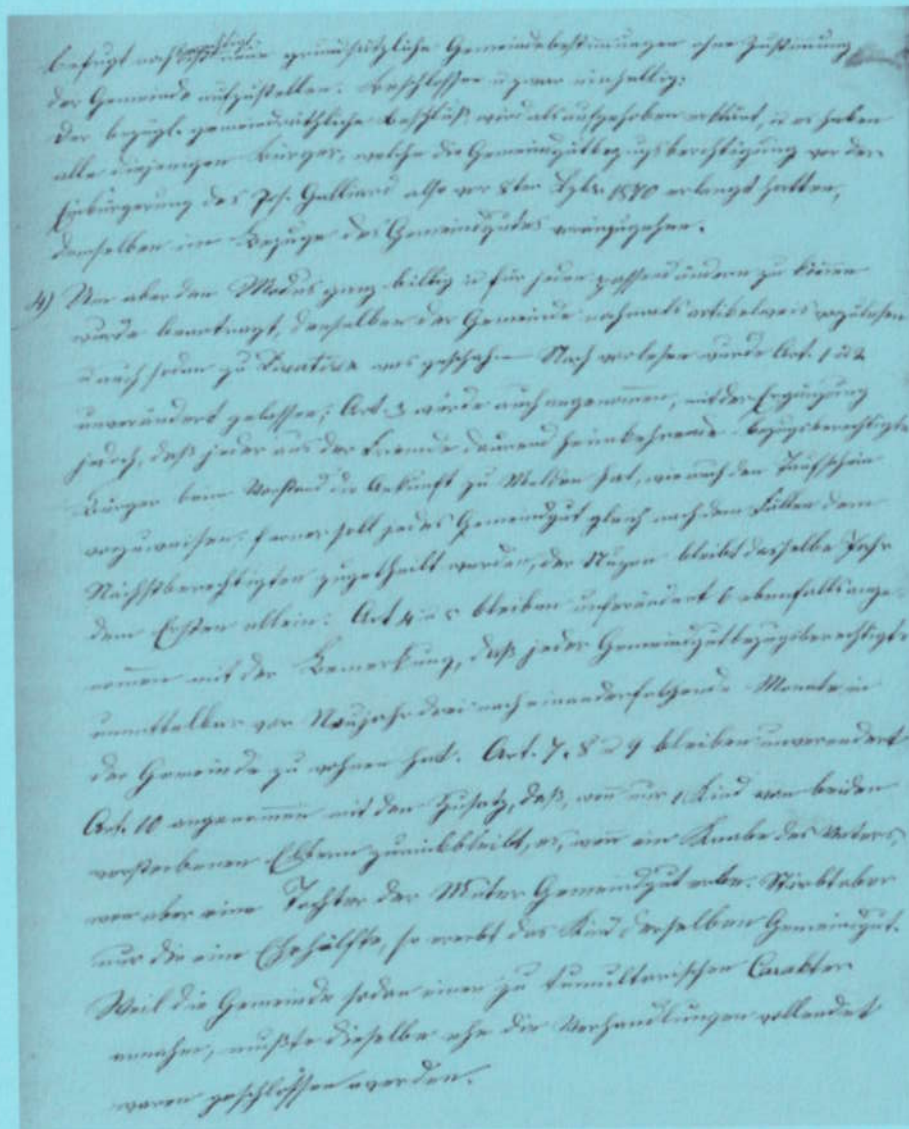 befugt noch berechtigt neue grundsätzliche Gemeindebestimmungen ohne Zustimmung
der Gemeinde aufzustellen. Beschlossen u zwar einhellig:
Der bezügl. gemeindräthliche Beschluß wird als aufgehoben erklärt, u es haben
alle diejenigen Bürger, welche die Gemeindgutbezugsberechtigung vor der
Einbürgerung des Jos. Galliard also vor 8ten 1870 erlangt hatten,
demselben im Bezuge des Gemeindgutes voranzugehen.
4) Um aber den Modus ganz billig u für jeden passend ändern zu können
wurde beantragt, denselben der Gemeinde nochmals artikelweis vorzulesen
u auch sodan zu was geschah. Nach vorlesen wurde Art. 1 u 2
unverändert gelassen; Art. 3 wurde auch angenommen, mit der Ergänzung
jedoch, daß jeder aus der Fremde dauernd heimkehrende bezugsberechtigte
Bürger beim Vorstand die Ankunft zu Melden hat, wie auch den Taufschein
vorzuweisen; ferner soll jedes Gemeindgut gleich nach dem Fallen dem
Nächstberechtigten zugetheilt werden, der Nuzen bleibt dasselbe Jahr
dem Ersten allein: Art 4 u 5 bleiben unverändert 6 ebenfalls ange-
nommen mit der Bemerkung, daß jeder Gemeindgutbezugsberechtigte
unmittelbar vor Neujahr drei nach einander folgende Monate in
der Gemeinde zu wohnen hat. Art. 7, 8 u 9 bleiben unverändert
Art. 10 angenommen mit dem Zusatz, daß, wen nur 1 Kind von beiden
verstorbenen Eltern zurückbleibt, es, wen ein Knabe des Vaters,
wen aber eine Tochter der Muter Gemeindgut erbe. Stirbt aber
nur die eine Ehehälfte, so ererbt das Kind derselben Gemeindgut.
Weil die Gemeinde sodan einen zu tumultarischen Carakter
annahm, mußte dieselbe ehe die Verhandlungen vollendet
waren geschlossen werden.